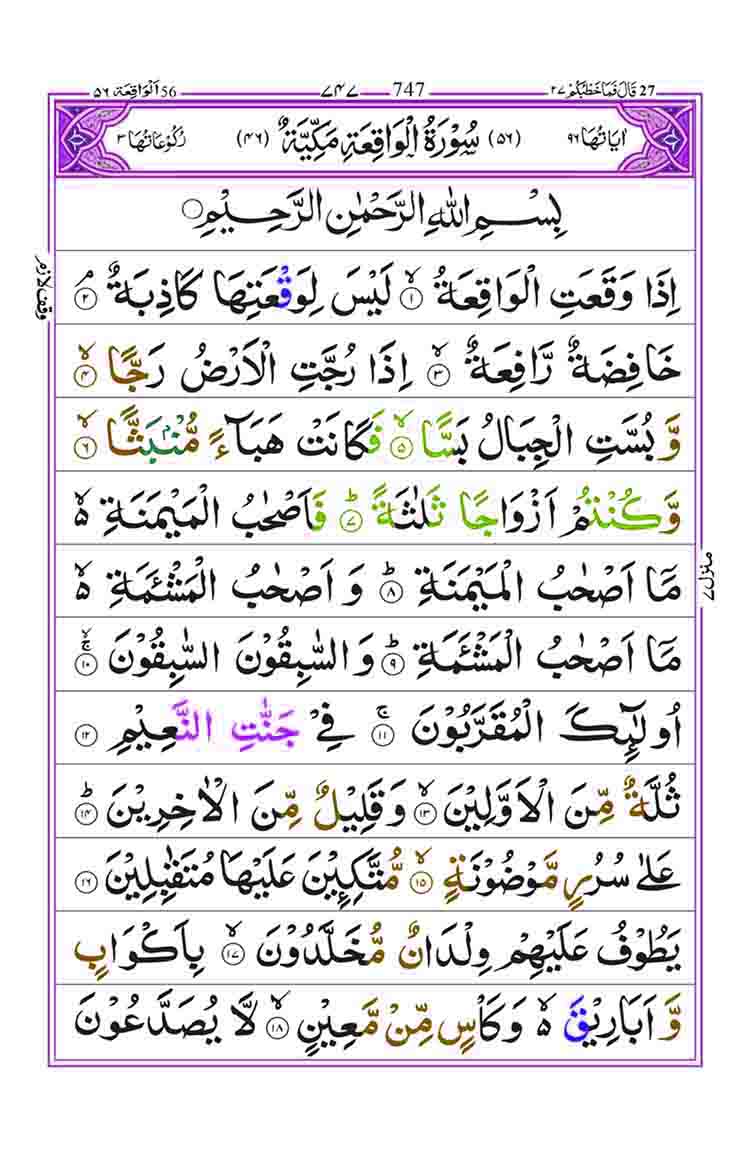 27 قَالَ فَمَا خَطْبُكُمْ ٢٧ 747 ٧٤٧ 56 اَلْوَاقِعَة ٥٦
اٰيَاتُهَا ٩٦ (٥٦) سُوْرَةُ الْوَاقِعَةِ مَكِّيَّةٌ (٤٦) رُكُوْعَاتُهَا ٣
بِسْمِ اللهِ الرَّحْمٰنِ الرَّحِيْمِ
اِذَا وَقَعَتِ الْوَاقِعَةُ ۙ﴿١﴾ لَيْسَ لِوَقْعَتِهَا كَاذِبَةٌ ۘ﴿٢﴾
وقف لازم
خَافِضَةٌ رَّافِعَةٌ ۙ﴿٣﴾ اِذَا رُجَّتِ الْاَرْضُ رَجًّا ۙ﴿٤﴾
وَّ بُسَّتِ الْجِبَالُ بَسًّا ۙ﴿٥﴾ فَكَانَتْ هَبَآءً مُّنْۢبَثًّا ۙ﴿٦﴾
وَّكُنْتُمْ اَزْوَاجًا ثَلٰثَةً ؕ﴿٧﴾ فَاَصْحٰبُ الْمَيْمَنَةِ ۙ۬
مَاۤ اَصْحٰبُ الْمَيْمَنَةِ ؕ﴿٨﴾ وَ اَصْحٰبُ الْمَشْـَٔمَةِ ۙ۬
منزل ٧
مَاۤ اَصْحٰبُ الْمَشْـَٔمَةِ ؕ﴿٩﴾ وَالسّٰبِقُوْنَ السّٰبِقُوْنَ ۚۙ﴿١٠﴾
اُولٰٓئِكَ الْمُقَرَّبُوْنَ ۚ﴿١١﴾ فِيْ جَنّٰتِ النَّعِيْمِ ﴿١٢﴾
ثُلَّةٌ مِّنَ الْاَوَّلِيْنَ ۙ﴿١٣﴾ وَقَلِيْلٌ مِّنَ الْاٰخِرِيْنَ ؕ﴿١٤﴾
عَلٰى سُرُرٍ مَّوْضُوْنَةٍ ۙ﴿١٥﴾ مُّتَّكِـِٕيْنَ عَلَيْهَا مُتَقٰبِلِيْنَ ﴿١٦﴾
يَطُوْفُ عَلَيْهِمْ وِلْدَانٌ مُّخَلَّدُوْنَ ۙ﴿١٧﴾ بِاَكْوَابٍ
وَّ اَبَارِيْقَ ۙ۬ وَكَاْسٍ مِّنْ مَّعِيْنٍ ۙ﴿١٨﴾ لَّا يُصَدَّعُوْنَ